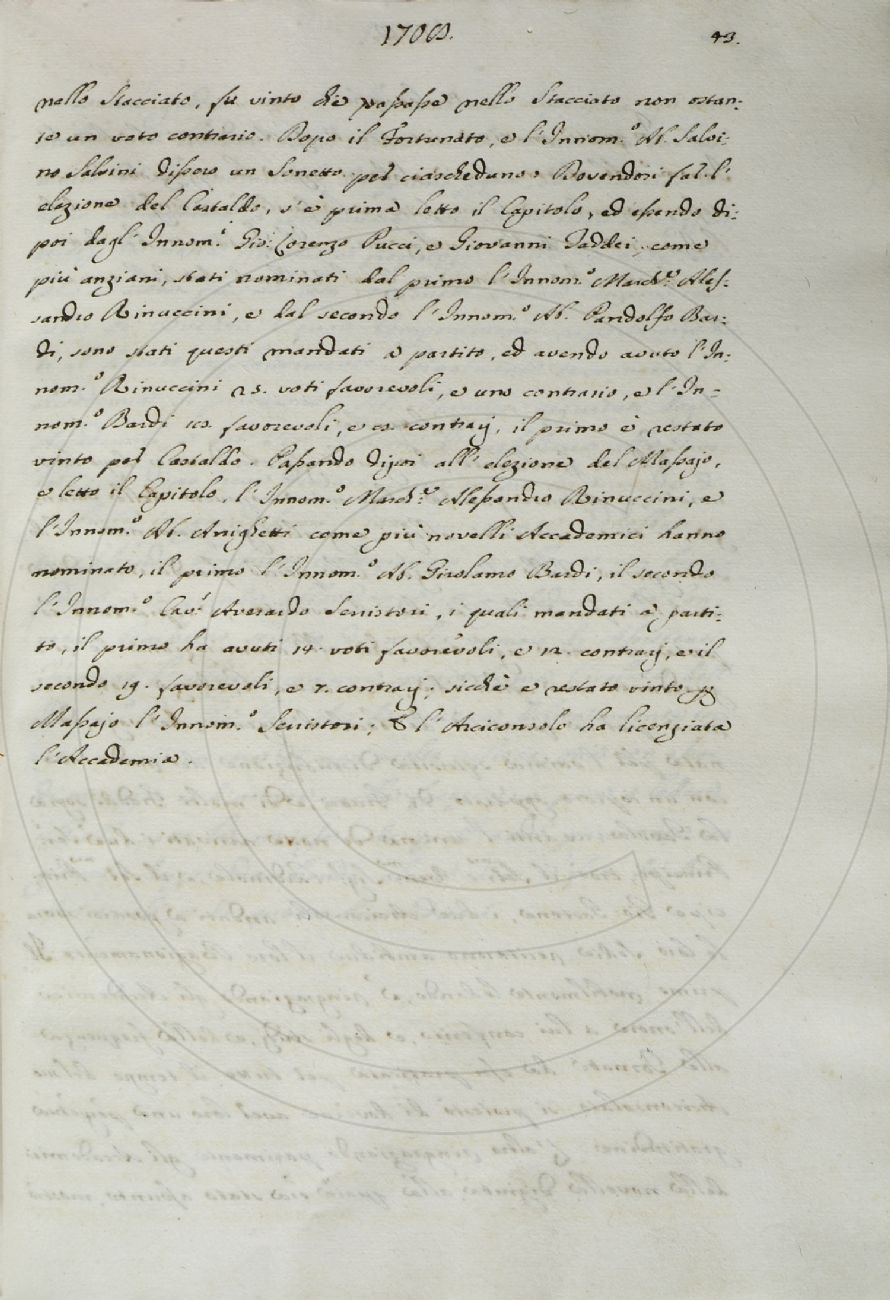 1708. 43.
nello Stacciato, fu vinto che passasse nello Stacciato non ostan:
te un voto contrario. Dopo il Fortunato, e l'Innom.º Ab. Salvi:
no Salvini dissero un Sonetto per ciaschedano. Dovendosi far l'
elezione del Castaldo, s'è prima letto il Capitolo, ed essendo di:
poi dagl'Innom.i Gio: Lorenzo Pucci, e Giovanni Taddei, come
più anziani, stati nominati dal primo l'Innom.º March.e Ales:
sandro Rinuccini, e dal secondo l'Innom.º Ab. Pandolfo Bar:
di, sono stati questi mandati a partito, ed avendo avuto l'In:
nom.º Rinuccini 25. voti favorevoli, e uno contrario, e l'In:
nom.º Bardi favorevoli, e contrarj, il primo è restato
vinto per Castaldo. Passando dipoi all'elezione del Massajo,
e letto il Capitolo, l'Innom.º March.e Alessandro Rinuccini, e
l'Innom.º Ab. Arrighetti come più novelli Accademici hanno
nominato, il primo l'Innom.º Ab. Girolamo Bardi, il secondo
l'Innom.º Cav.r Averardo Serristori, i quali mandati a parti:
to, il primo ha avuti 14. voti favorevoli, e 12. contrarj, e il
secondo 19. favorevoli, e 7. contrarj; sicchè è restato vinto p
Massajo l'Innom.º Serristori; E l'Arciconsolo ha licenziata
l'Accademia.